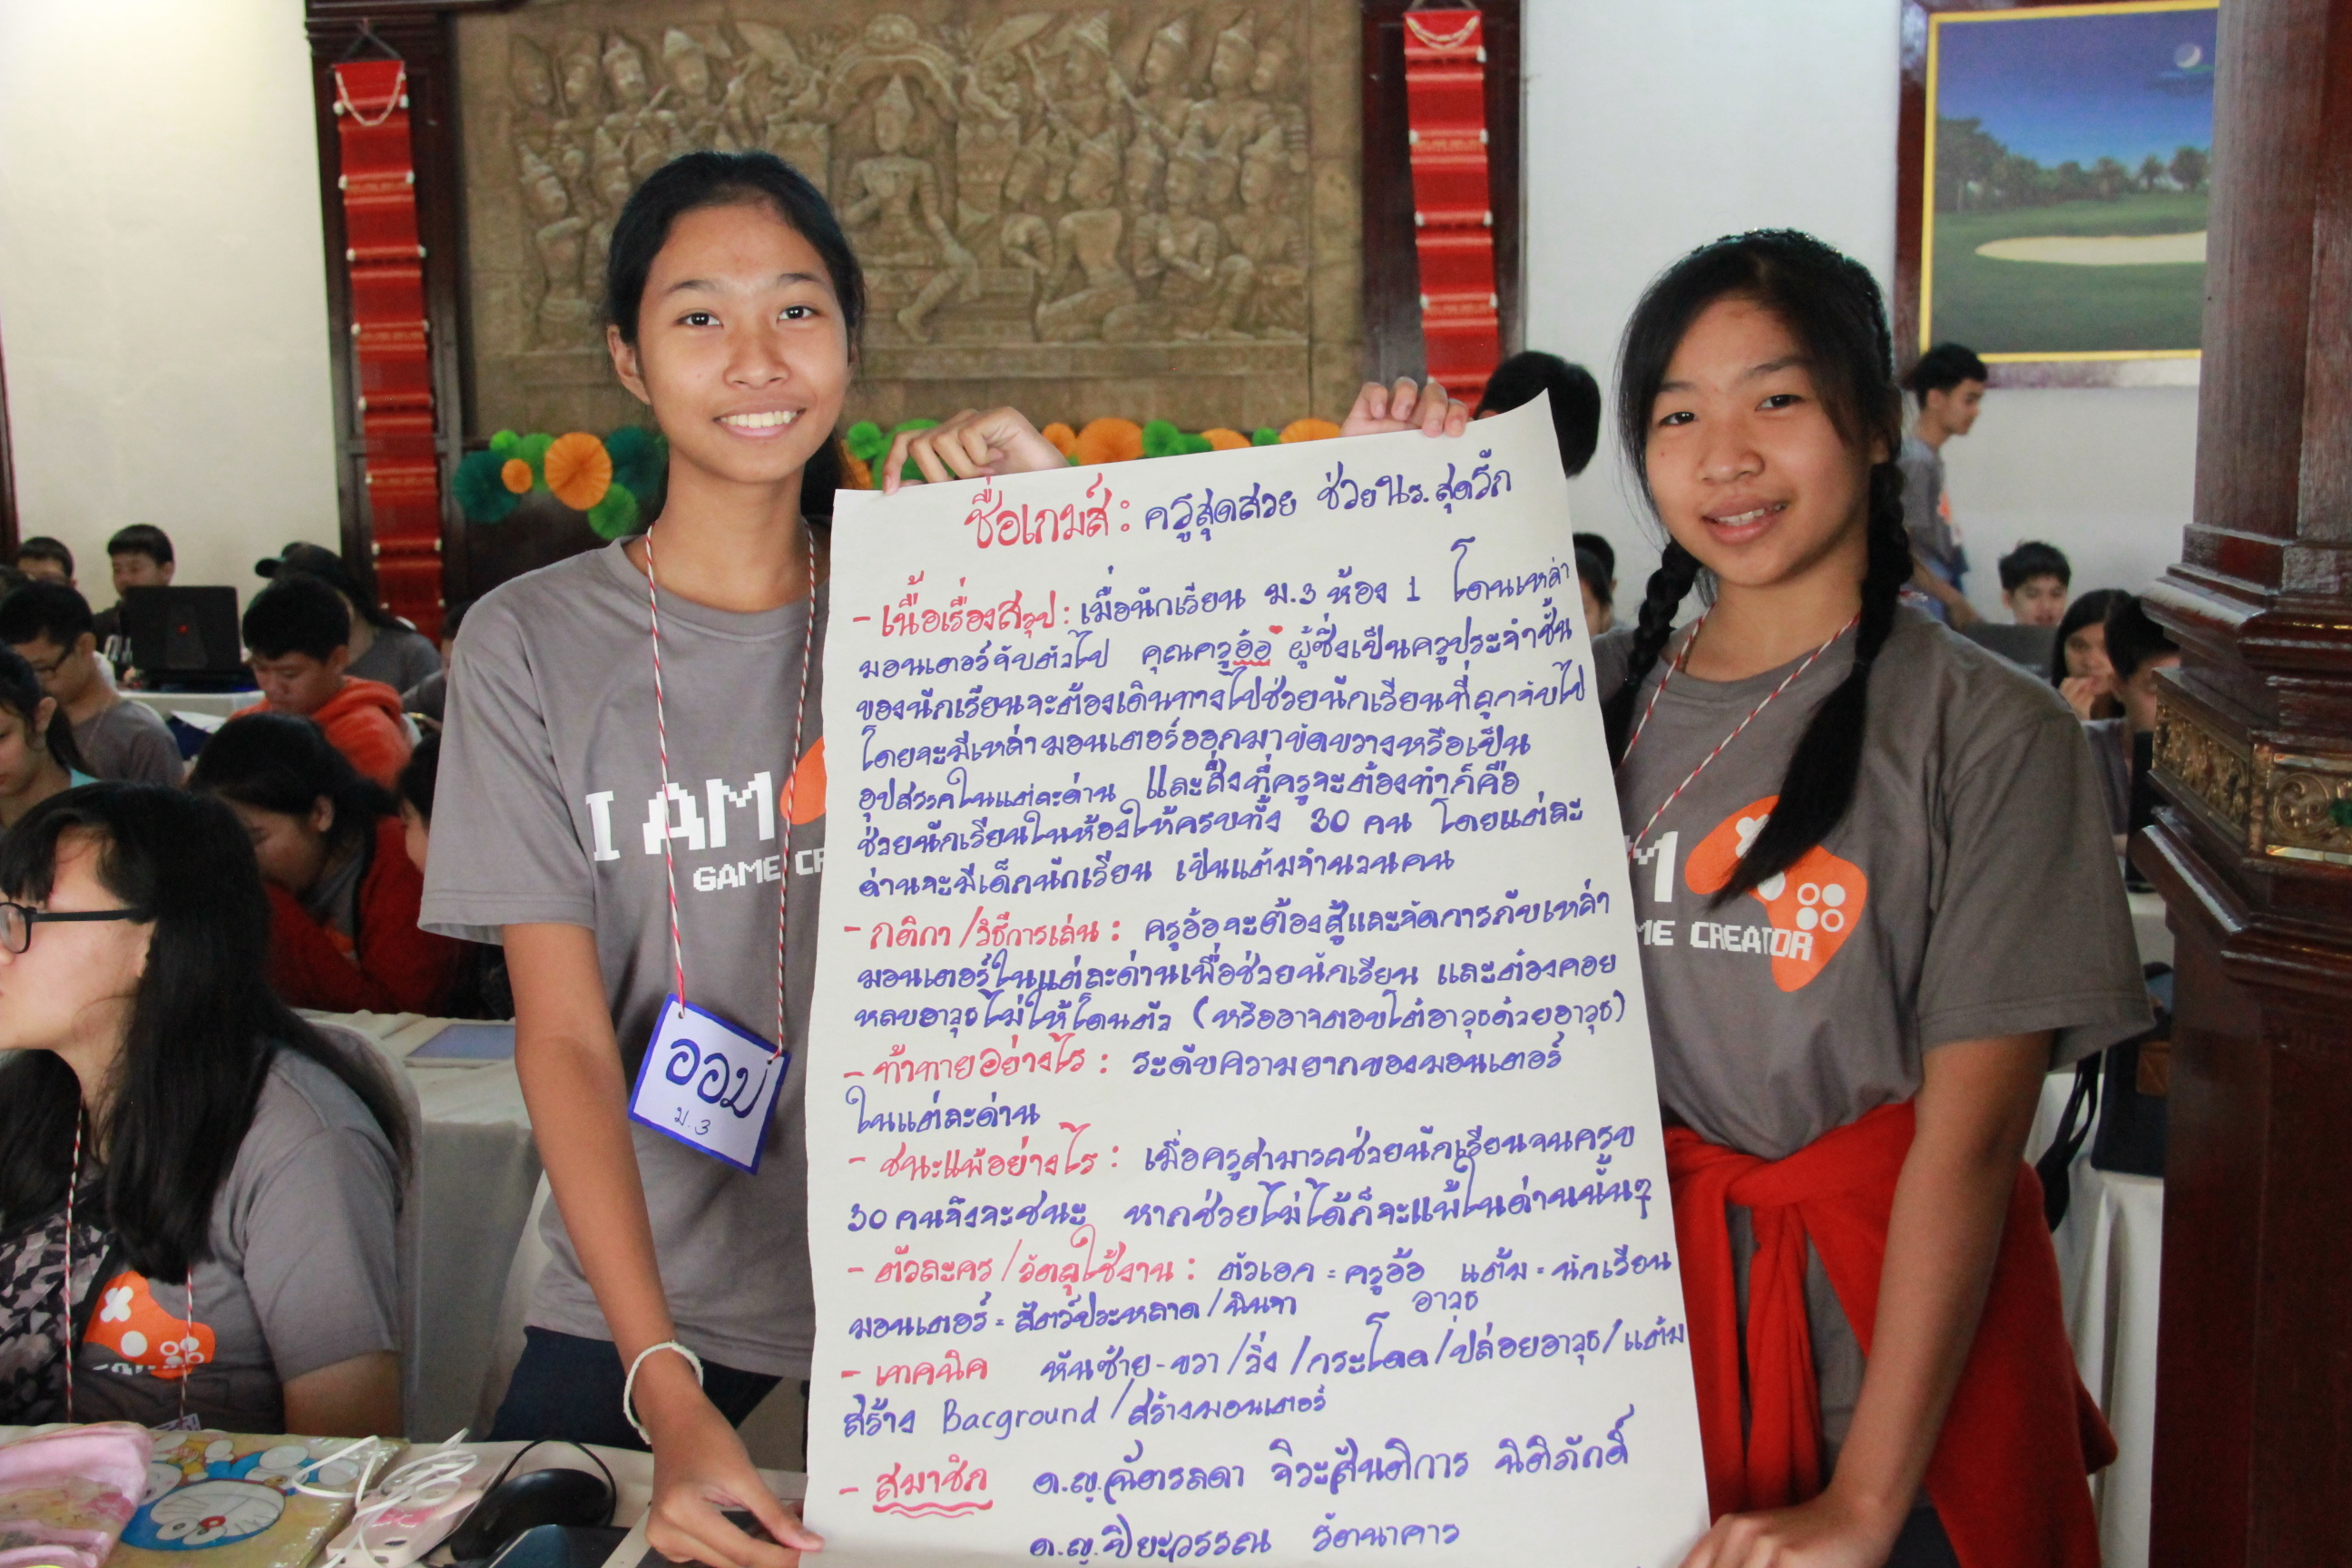 ชื่อเกมส์ : ครูสุดสวย ช่วยนร.สุดรัก
- เนื้อเรื่องสรุป : เมื่อนักเรียน ม.3 ห้อง 1 โดนเหล่า
มอนเตอร์จับตัวไป คุณครูอ้อ ผู้ซึ่งเป็นครูประจำชั้น
ของนักเรียนจะต้องเดินทางไปช่วยนักเรียนที่ถูกจับไป
โดยจะมีเหล่ามอนเตอร์ออกมาขัดขวางหรือเป็น
อุปสรรคในแต่ละด่าน และสิ่งที่ครูจะต้องทำก็คือ
ช่วยนักเรียนในห้องให้ครบทั้ง 30 คน โดยแต่ละ
ด่านจะมีเด็กนักเรียน เป็นแต้มจำนวนคน
- กติกา /วิธีการเล่น : ครูอ้อจะต้องสู้และจัดการกับเหล่า
มอนเตอร์ในแต่ละด่านเพื่อช่วยนักเรียน และต้องคอย
หลบอาวุธไม่ให้โดนตัว (หรืออาจตอบโต้อาวุธด้วยอาวุธ)
- ท้าทายอย่างไร : ระดับความยากของมอนเตอร์
ในแต่ละด่าน
- ชนะแพ้อย่างไร : เมื่อครูสามารถช่วยนักเรียนจนครบ
30 คนจึงจะชนะ หากช่วยไม่ได้ก็จะแพ้ในด่านนั้นๆ
- ตัวละคร /วัตถุใช้งาน : ตัวเอก = ครูอ้อ แต้ม = นักเรียน
มอนเตอร์ = สัตว์ประหลาด/นินจา อาวุธ
- เทคนิค หันซ้าย-ขวา /วิ่ง /กระโดด/ปล่อยอาวุธ/แต้ม
สร้าง Bacground /สร้างมอนเตอร์
- สมาชิก ด.ญ.ฉัตรลดา จิระสันติการ นิติภักดิ์
ด.ญ.ปิยะวรรณ รัตนาคาร
I AM
GAME CR
ออม
ม.3
M
ME CREATOR